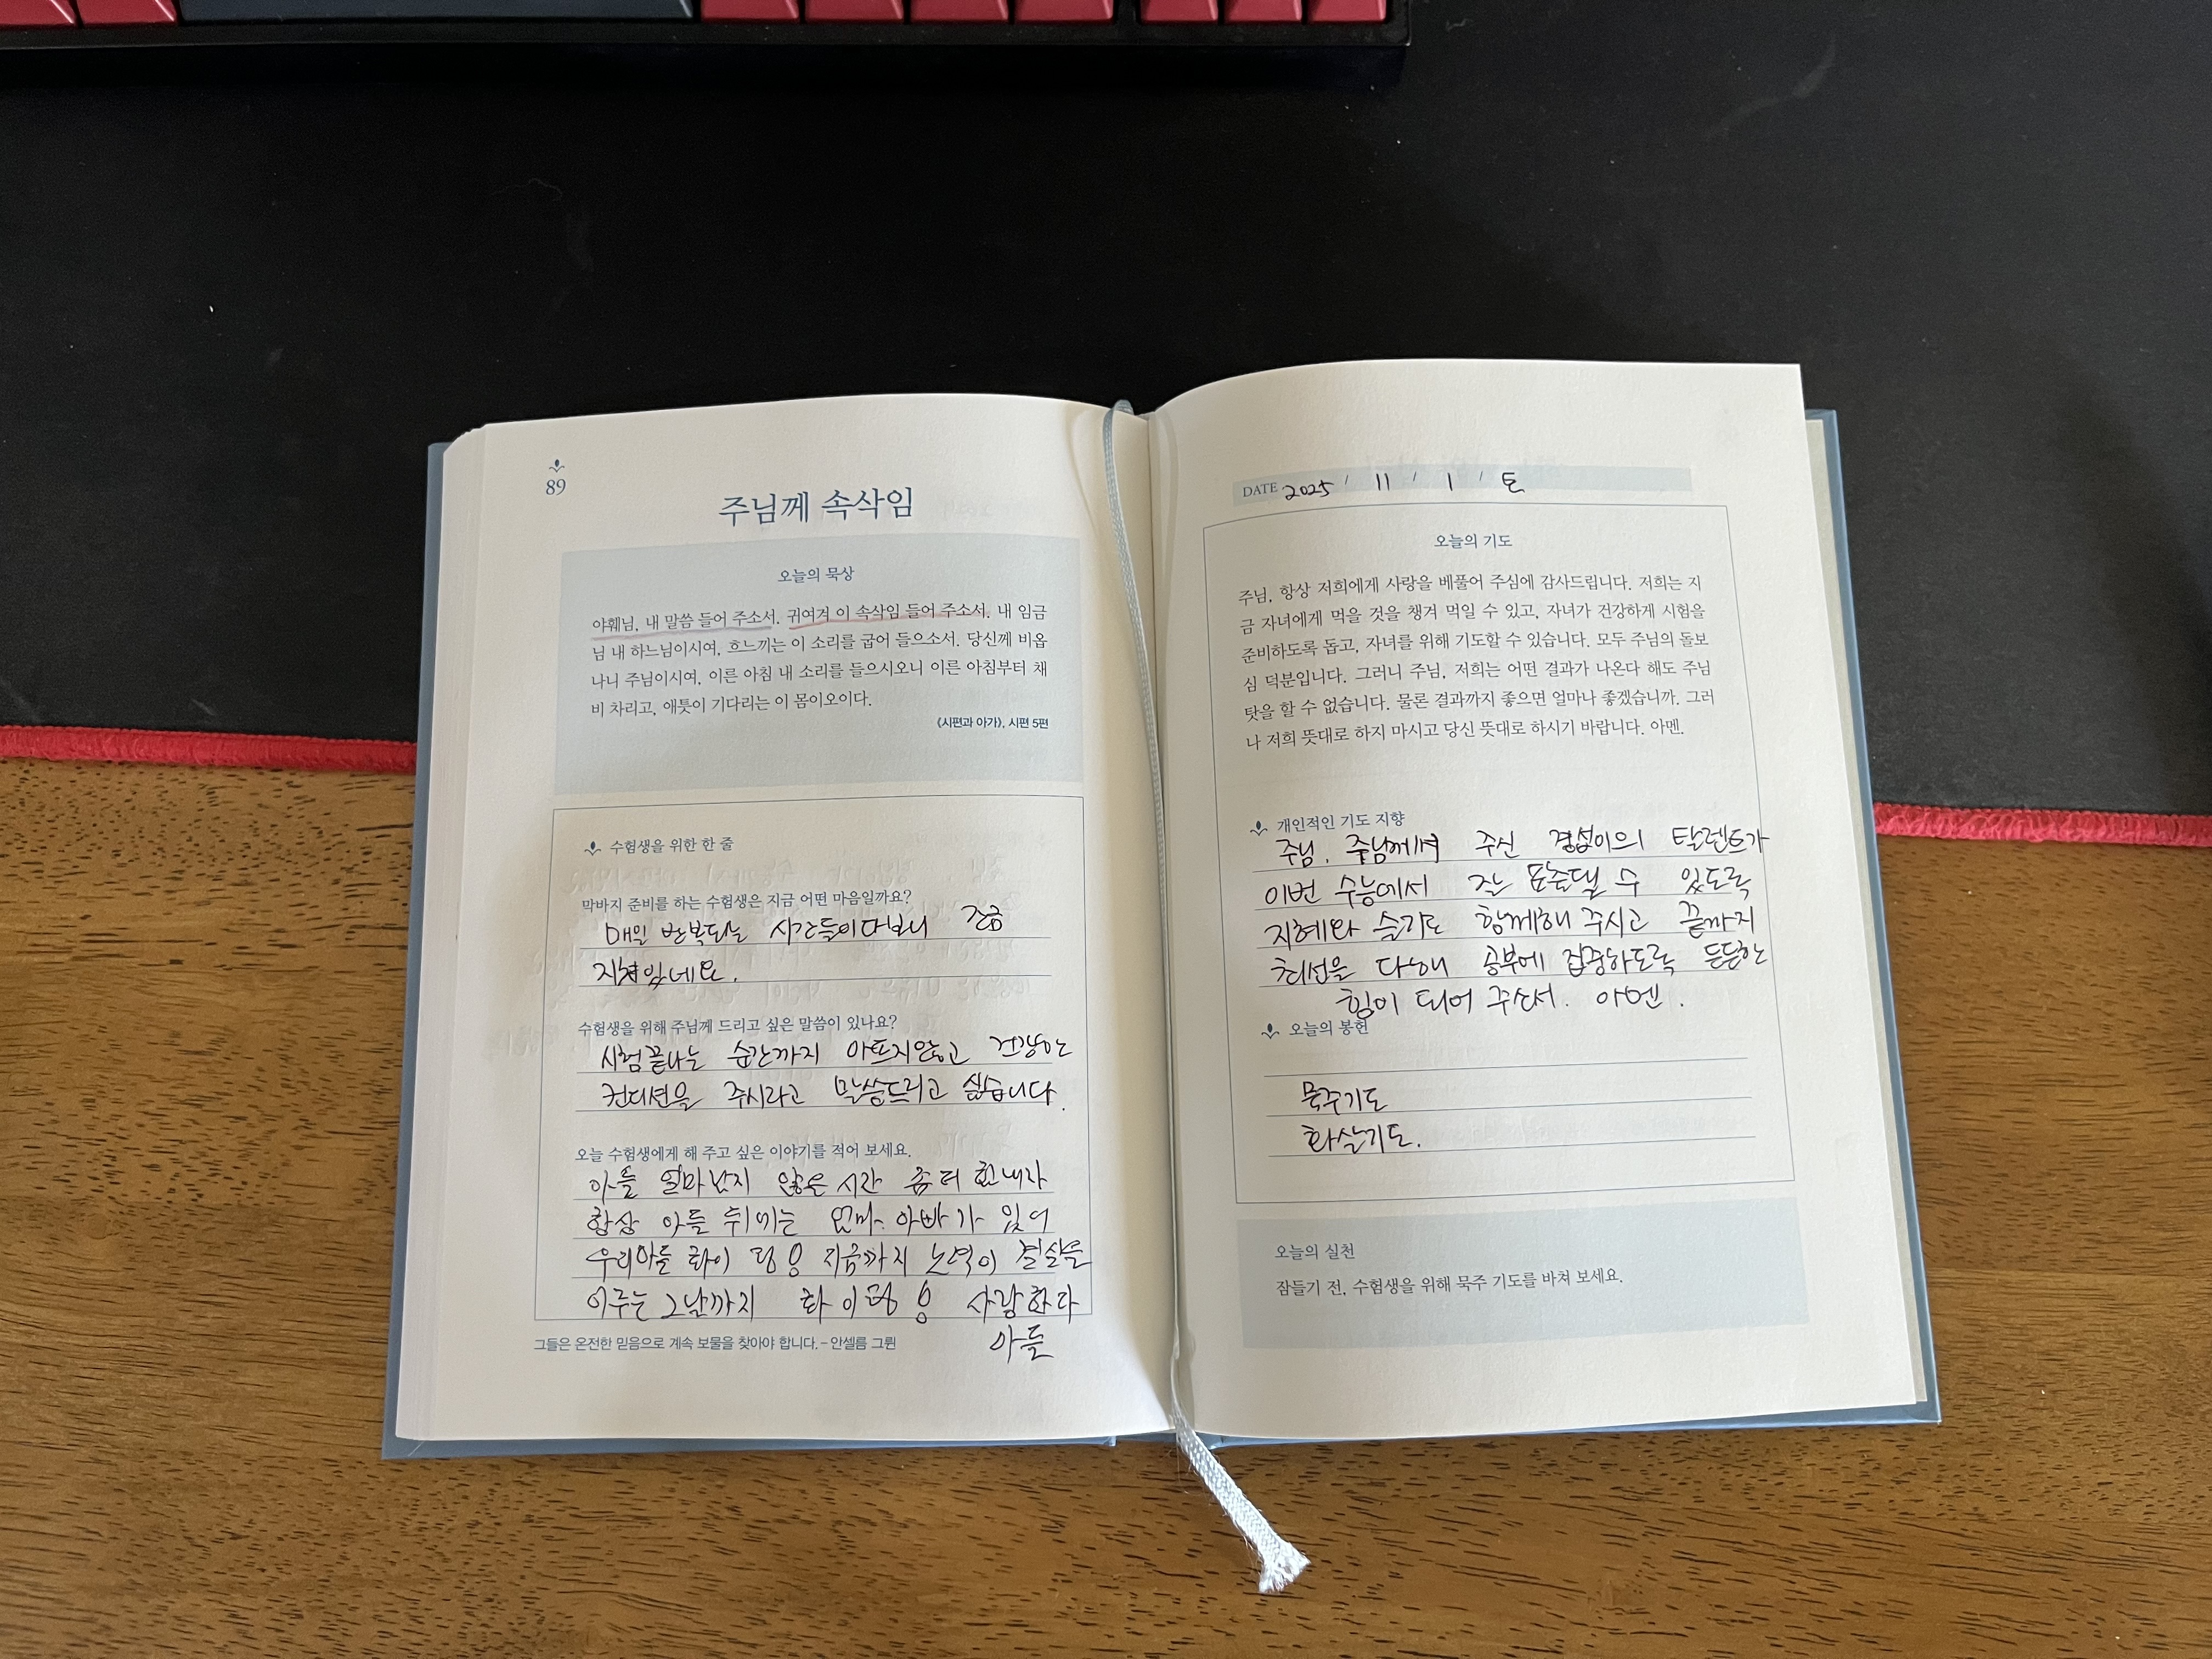 89
주님께 속삭임
오늘의 묵상
야훼님, 내 말씀 들어 주소서. 귀여겨 이 속삭임 들어 주소서. 내 임금
님 내 하느님이시여, 흐느끼는 이 소리를 굽어 들으소서. 당신께 비옵
나니 주님이시여, 이른 아침 내 소리를 들으시오니 이른 아침부터 채
비 차리고, 애틋이 기다리는 이 몸이오이다.
《시편과 아가》, 시편 5편
수험생을 위한 한 줄
막바지 준비를 하는 수험생은 지금 어떤 마음일까요?
매일 반복되는 시간들이다보니 조금
지쳐있네요.
수험생을 위해 주님께 드리고 싶은 말씀이 있나요?
시험끝나는 순간까지 아프지않고 건강한
컨디션을 주시라고 말씀드리고 싶습니다.
오늘 수험생에게 해 주고 싶은 이야기를 적어 보세요.
아들 얼마남지 않은 시간 좀 더 힘내자
항상 아들 뒤에는 엄마. 아빠가 있어
우리아들 화이팅 지금까지 노력이 결실을
이루는 그날까지 화이팅 사랑한다
아들
그들은 온전한 믿음으로 계속 보물을 찾아야 합니다. – 안셀름 그륀
DATE 2025 / 11 / 1 / 토
오늘의 기도
주님, 항상 저희에게 사랑을 베풀어 주심에 감사드립니다. 저희는 지
금 자녀에게 먹을 것을 챙겨 먹일 수 있고, 자녀가 건강하게 시험을
준비하도록 돕고, 자녀를 위해 기도할 수 있습니다. 모두 주님의 돌보
심 덕분입니다. 그러니 주님, 저희는 어떤 결과가 나온다 해도 주님
탓을 할 수 없습니다. 물론 결과까지 좋으면 얼마나 좋겠습니까. 그러
나 저희 뜻대로 하지 마시고 당신 뜻대로 하시기 바랍니다. 아멘.
개인적인 기도 지향
주님. 주님께서 주신 탈렌트가
이번 수능에서 잘 표출될 수 있도록
지혜와 슬기도 함께해 주시고 끝까지
최선을 다해 공부에 집중하도록 든든한
힘이 되어 주소서. 아멘.
오늘의 봉헌
묵주기도
화살기도.
오늘의 실천
잠들기 전, 수험생을 위해 묵주 기도를 바쳐 보세요.